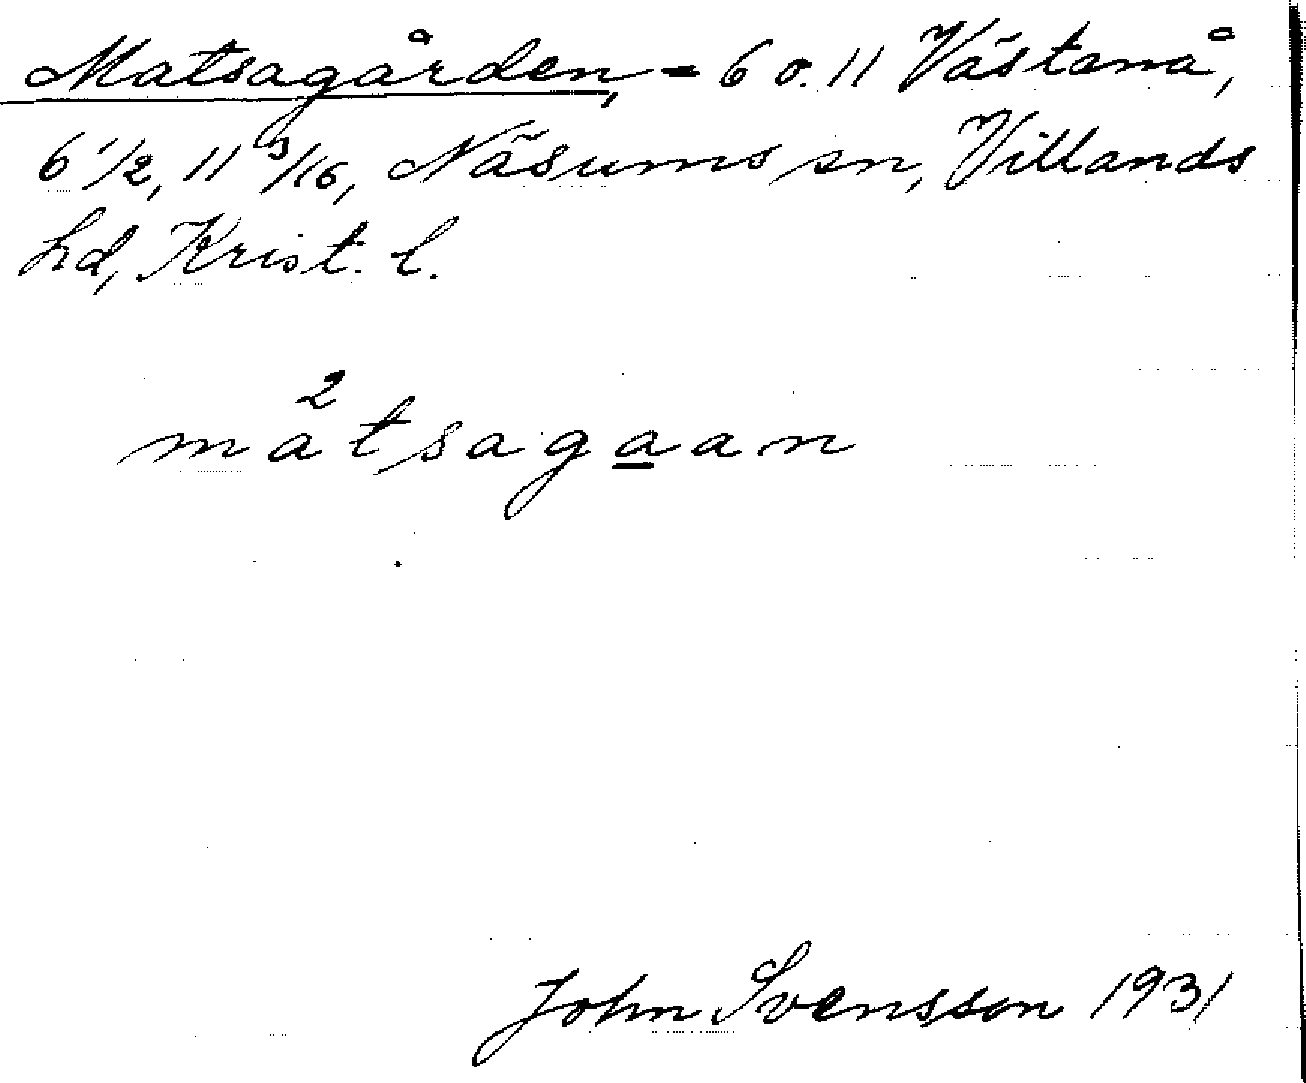 Matsagården, = 6 o. 11 Västanå,
6 1/2, 11 3/16, Näsums sn, Villands
hd, Krist. l.
2
matsagaan
John Svensson 1931